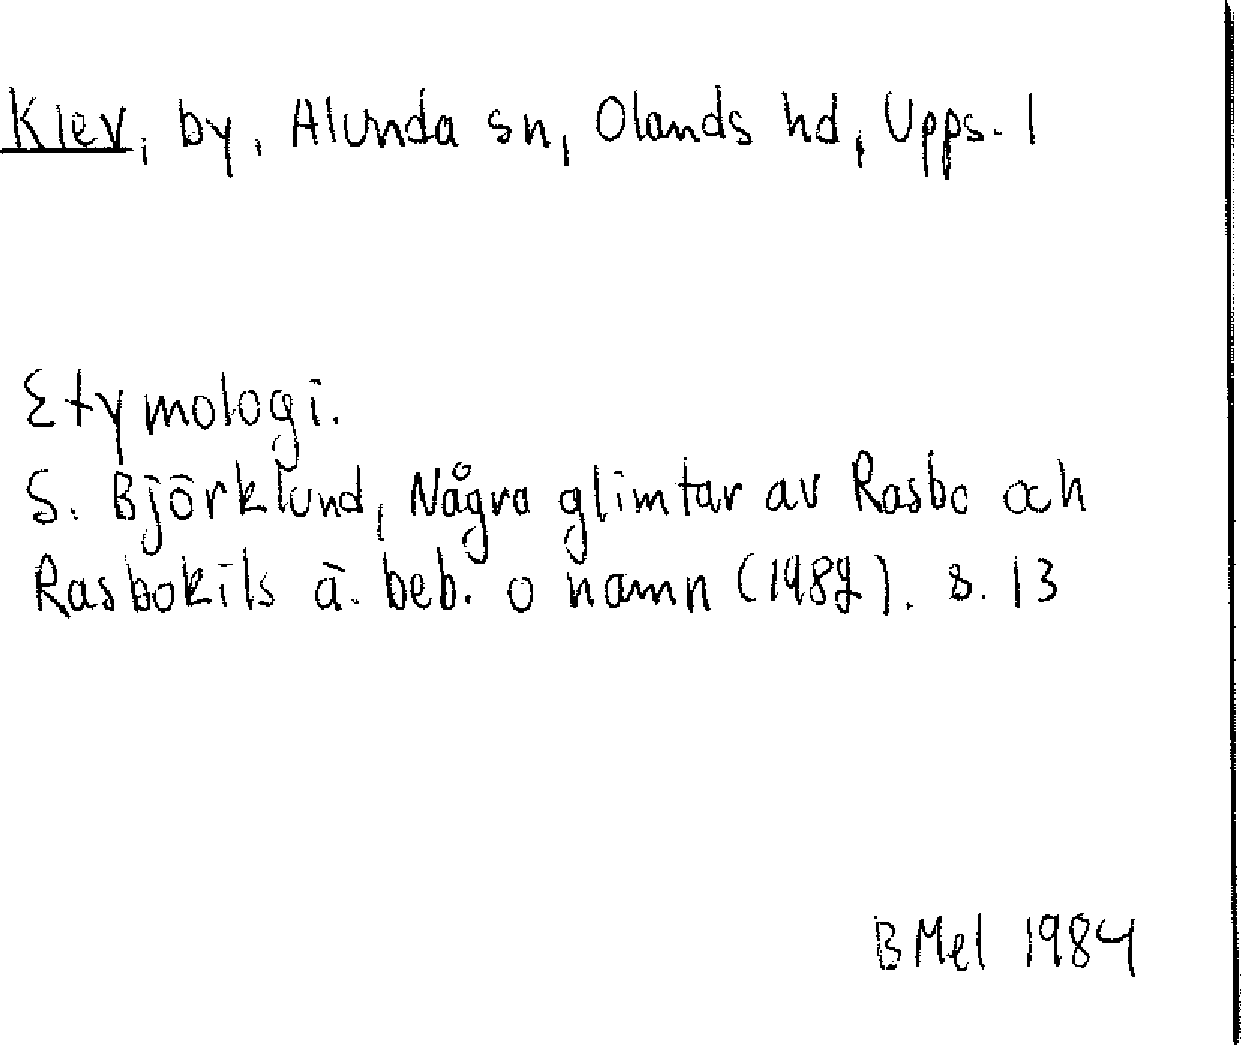 Klev, by, Alunda sn, Olands hd, Upps. l
Etymologi.
S. Björklund, Några glimtar av Rasbo och
Rasbokils ä. beb. o namn (1982). s. 13
BMel 1984